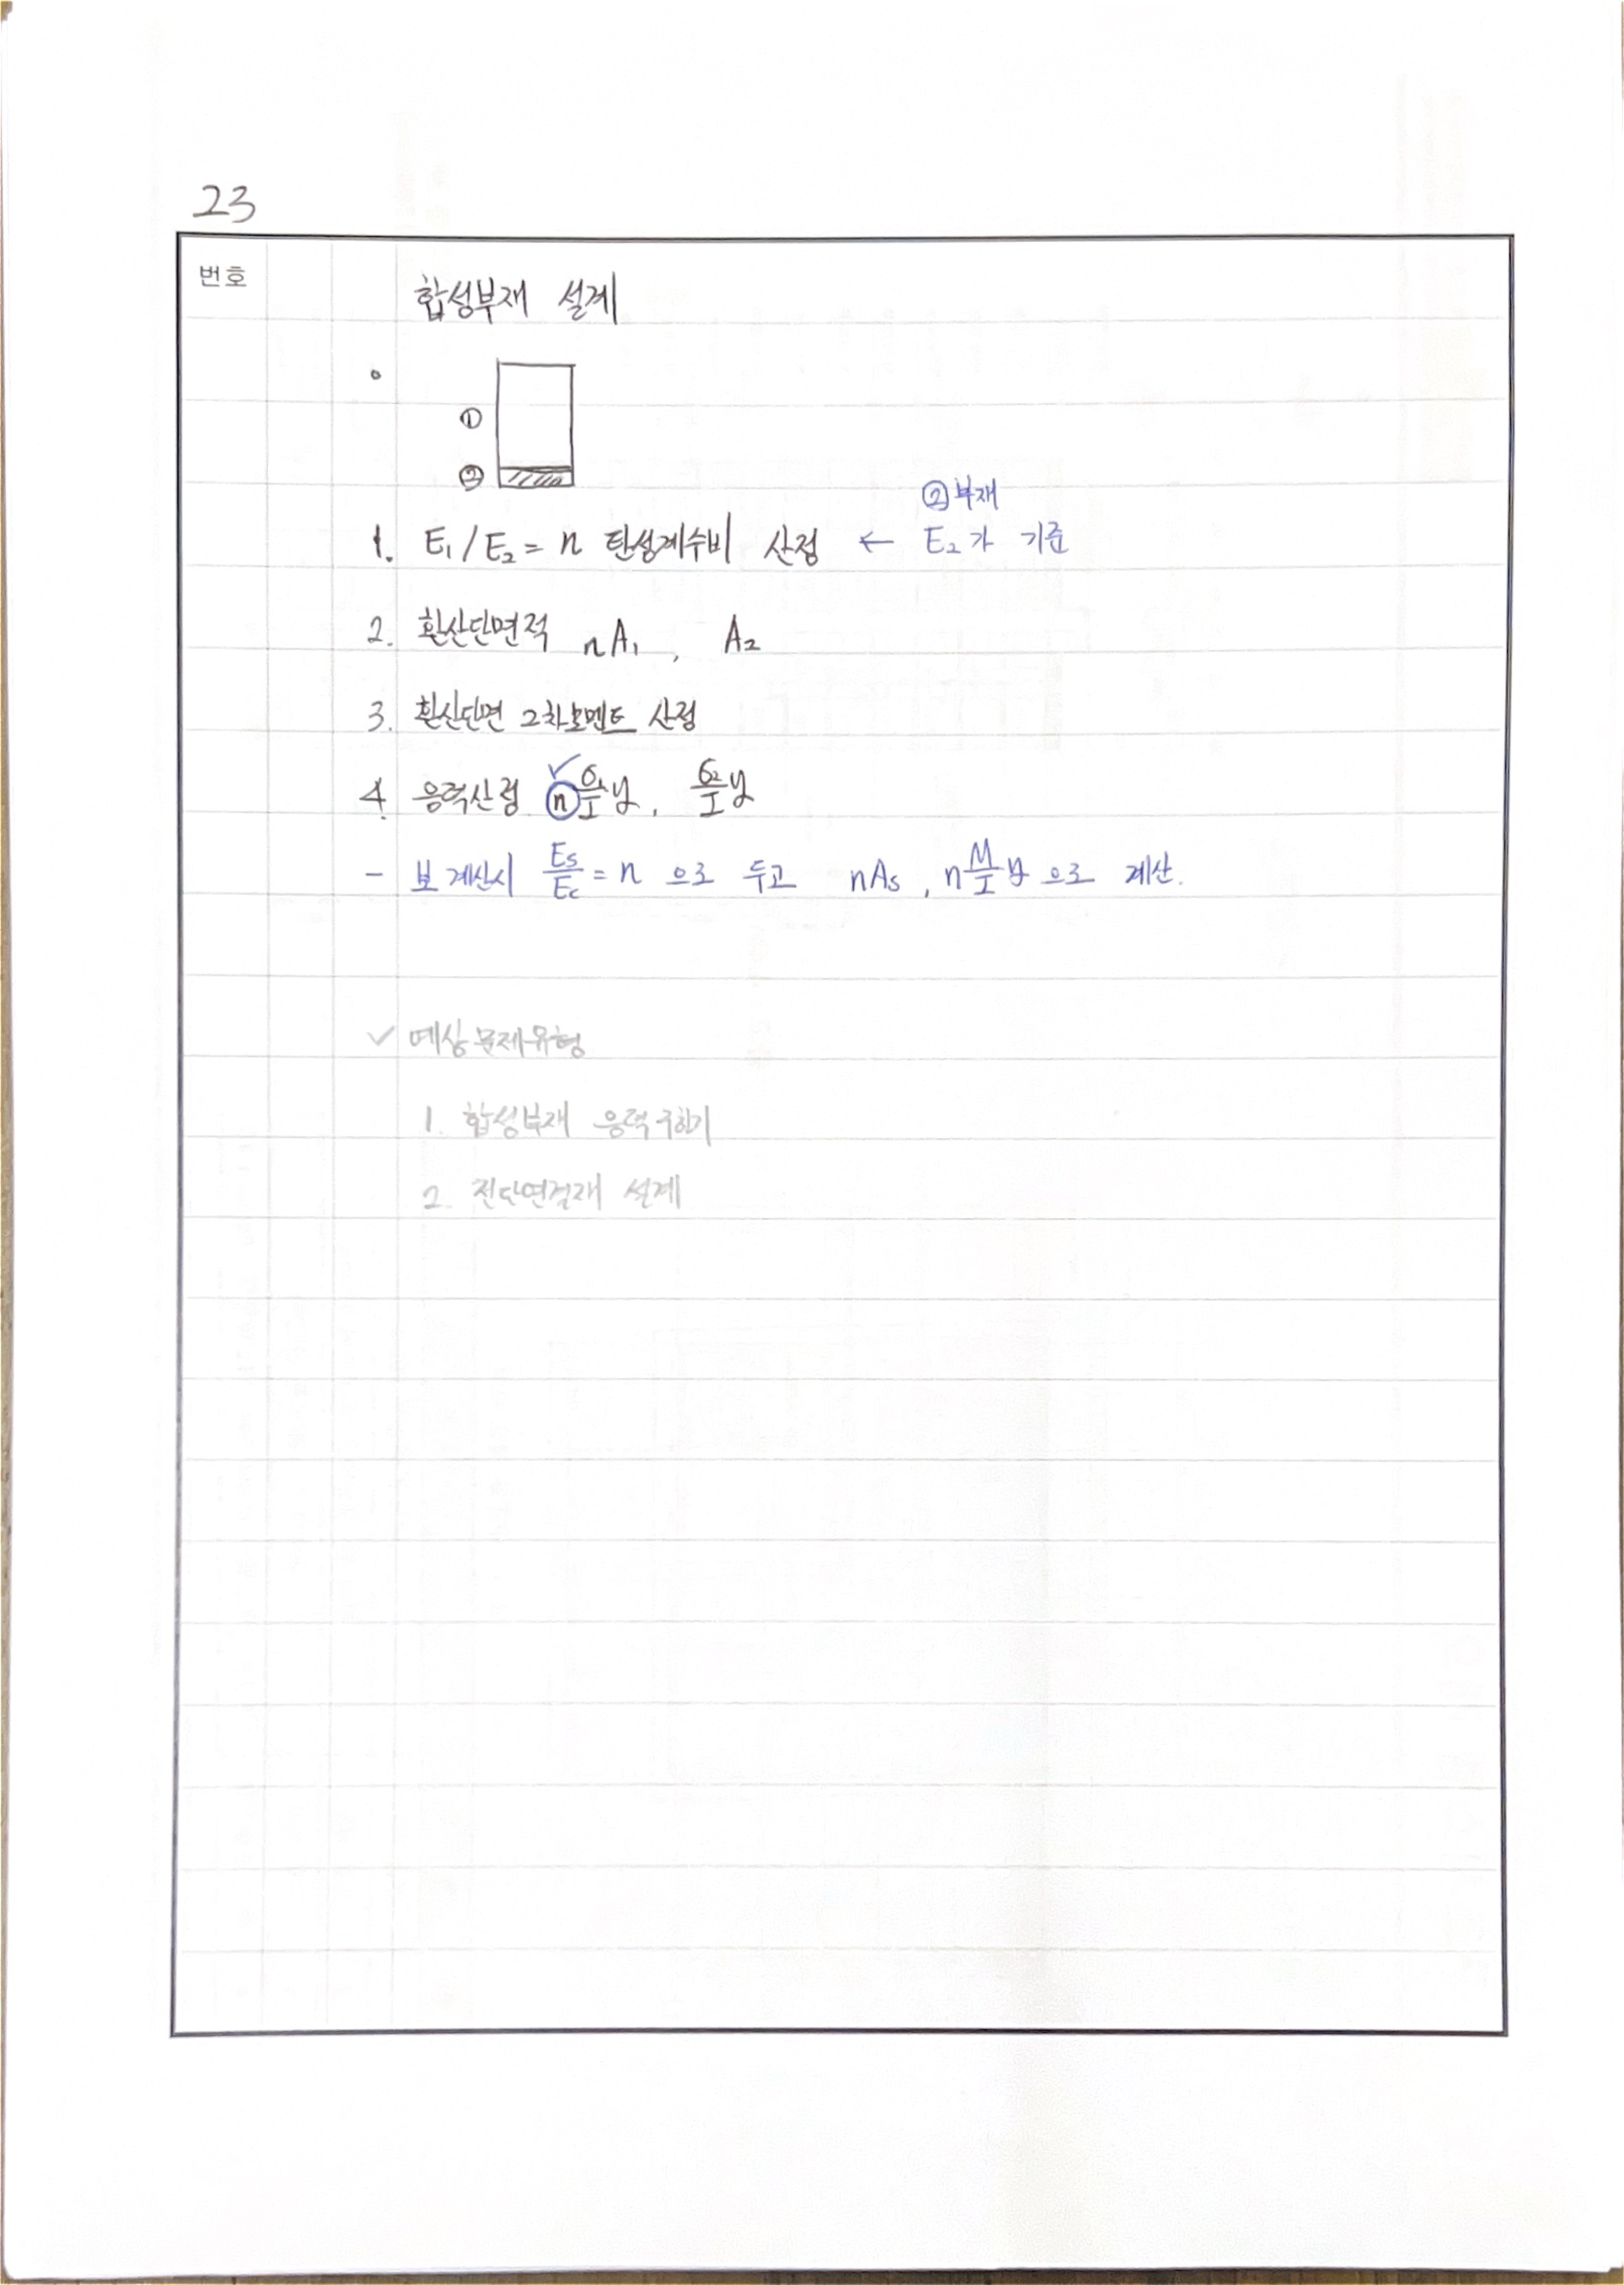 23
번호
합성부재 설계
①
②
②부재
1. E₁/E₂ = n 탄성계수비 산정 ← E₂가 기준
2. 환산단면적 nA₁, A₂
3. 환산단면 2차모멘트 산정
4. 응력산정 ✓ⓝ σ₁/I y, σ₂/I y
- 보 계산시 Es/Ec = n 으로 두고 nAs, n M/I y 으로 계산.
✓ 예상문제유형
1. 합성부재 응력구하기
2. 전단연결재 설계